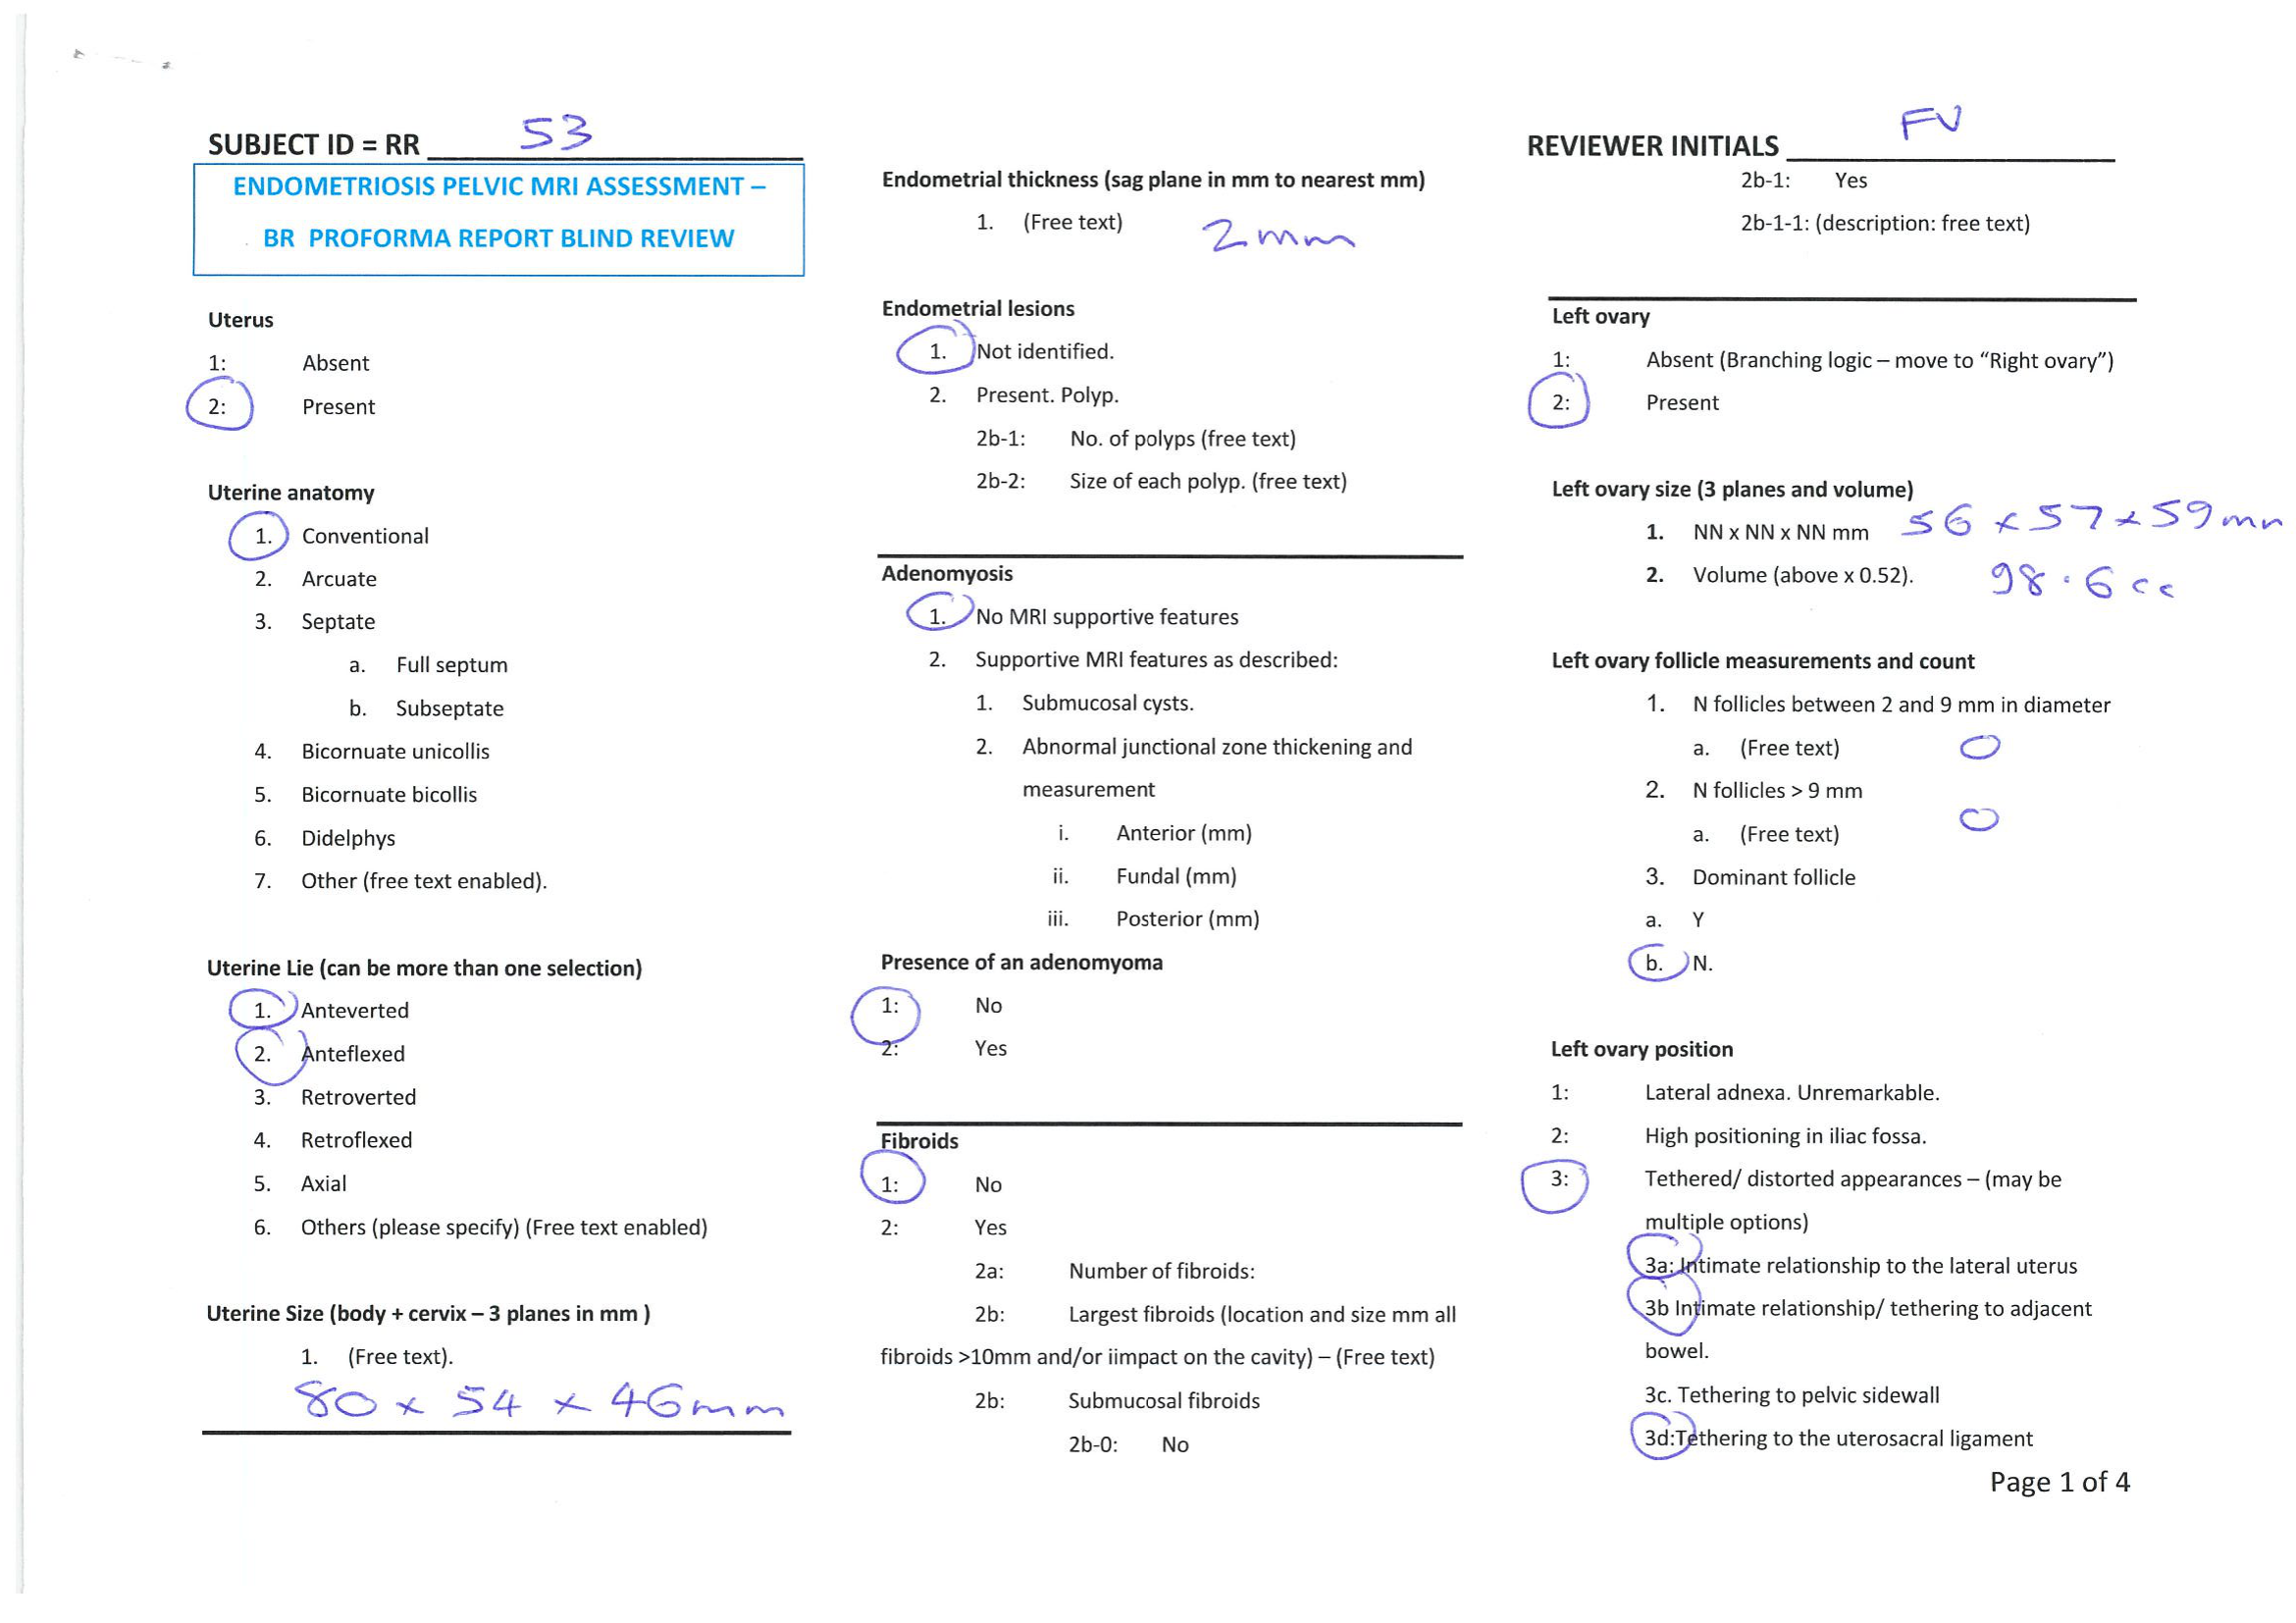 SUBJECT ID = RR 53
ENDOMETRIOSIS PELVIC MRI ASSESSMENT –
BR PROFORMA REPORT BLIND REVIEW
Uterus
1: Absent
2: Present
Uterine anatomy
1. Conventional
2. Arcuate
3. Septate
a. Full septum
b. Subseptate
4. Bicornuate unicollis
5. Bicornuate bicollis
6. Didelphys
7. Other (free text enabled).
Uterine Lie (can be more than one selection)
1. Anteverted
2. Anteflexed
3. Retroverted
4. Retroflexed
5. Axial
6. Others (please specify) (Free text enabled)
Uterine Size (body + cervix – 3 planes in mm )
1. (Free text).
80 x 54 x 46mm
Endometrial thickness (sag plane in mm to nearest mm)
1. (Free text) 2mm
Endometrial lesions
1. Not identified.
2. Present. Polyp.
2b-1: No. of polyps (free text)
2b-2: Size of each polyp. (free text)
Adenomyosis
1. No MRI supportive features
2. Supportive MRI features as described:
1. Submucosal cysts.
2. Abnormal junctional zone thickening and
measurement
i. Anterior (mm)
ii. Fundal (mm)
iii. Posterior (mm)
Presence of an adenomyoma
1: No
2: Yes
Fibroids
1: No
2: Yes
2a: Number of fibroids:
2b: Largest fibroids (location and size mm all
fibroids >10mm and/or iimpact on the cavity) – (Free text)
2b: Submucosal fibroids
2b-0: No
REVIEWER INITIALS FV
2b-1: Yes
2b-1-1: (description: free text)
Left ovary
1: Absent (Branching logic – move to “Right ovary”)
2: Present
Left ovary size (3 planes and volume)
1. NN x NN x NN mm 56 x 57 x 59mm
2. Volume (above x 0.52). 98.6 cc
Left ovary follicle measurements and count
1. N follicles between 2 and 9 mm in diameter
a. (Free text) 0
2. N follicles > 9 mm
a. (Free text) 0
3. Dominant follicle
a. Y
b. N.
Left ovary position
1: Lateral adnexa. Unremarkable.
2: High positioning in iliac fossa.
3: Tethered/ distorted appearances – (may be
multiple options)
3a: Intimate relationship to the lateral uterus
3b Intimate relationship/ tethering to adjacent
bowel.
3c. Tethering to pelvic sidewall
3d:Tethering to the uterosacral ligament
Page 1 of 4